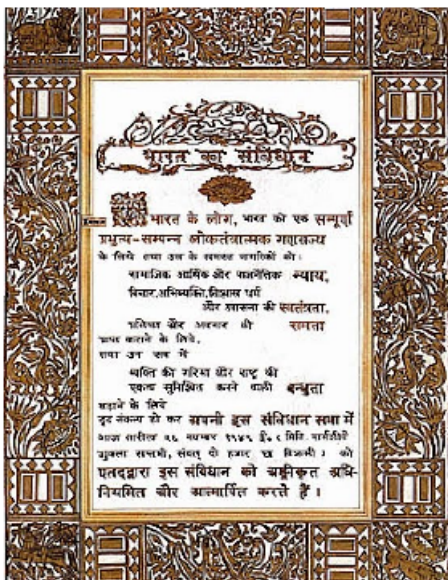 भारत का संविधान
हम भारत के लोग, भारत को एक सम्पूर्ण
प्रभुत्व-सम्पन्न लोकतंत्रात्मक गणराज्य
के लिये तथा उस के समस्त नागरिकों को:
सामाजिक आर्थिक और राजनैतिक न्याय,
विचार,अभिव्यक्ति,विश्वास धर्म
और उपासना की स्वतंत्रता,
प्रतिष्ठा और अवसर की समता
प्राप्त कराने के लिये,
तथा उन सब में
व्यक्ति की गरिमा और राष्ट्र की
एकता सुनिश्चित करने वाली बन्धुता
बढ़ाने के लिये
दृढ़ संकल्प हो कर अपनी इस संविधान सभा में
आज तारीख २६ नवम्बर १९४९ ई. ( मिति मार्गशीर्ष
शुक्ला सप्तमी, संवत् दो हजार छ विक्रमी ) को
एतद्द्वारा इस संविधान को अङ्गीकृत अधि-
नियमित और आत्मार्पित करते हैं ।